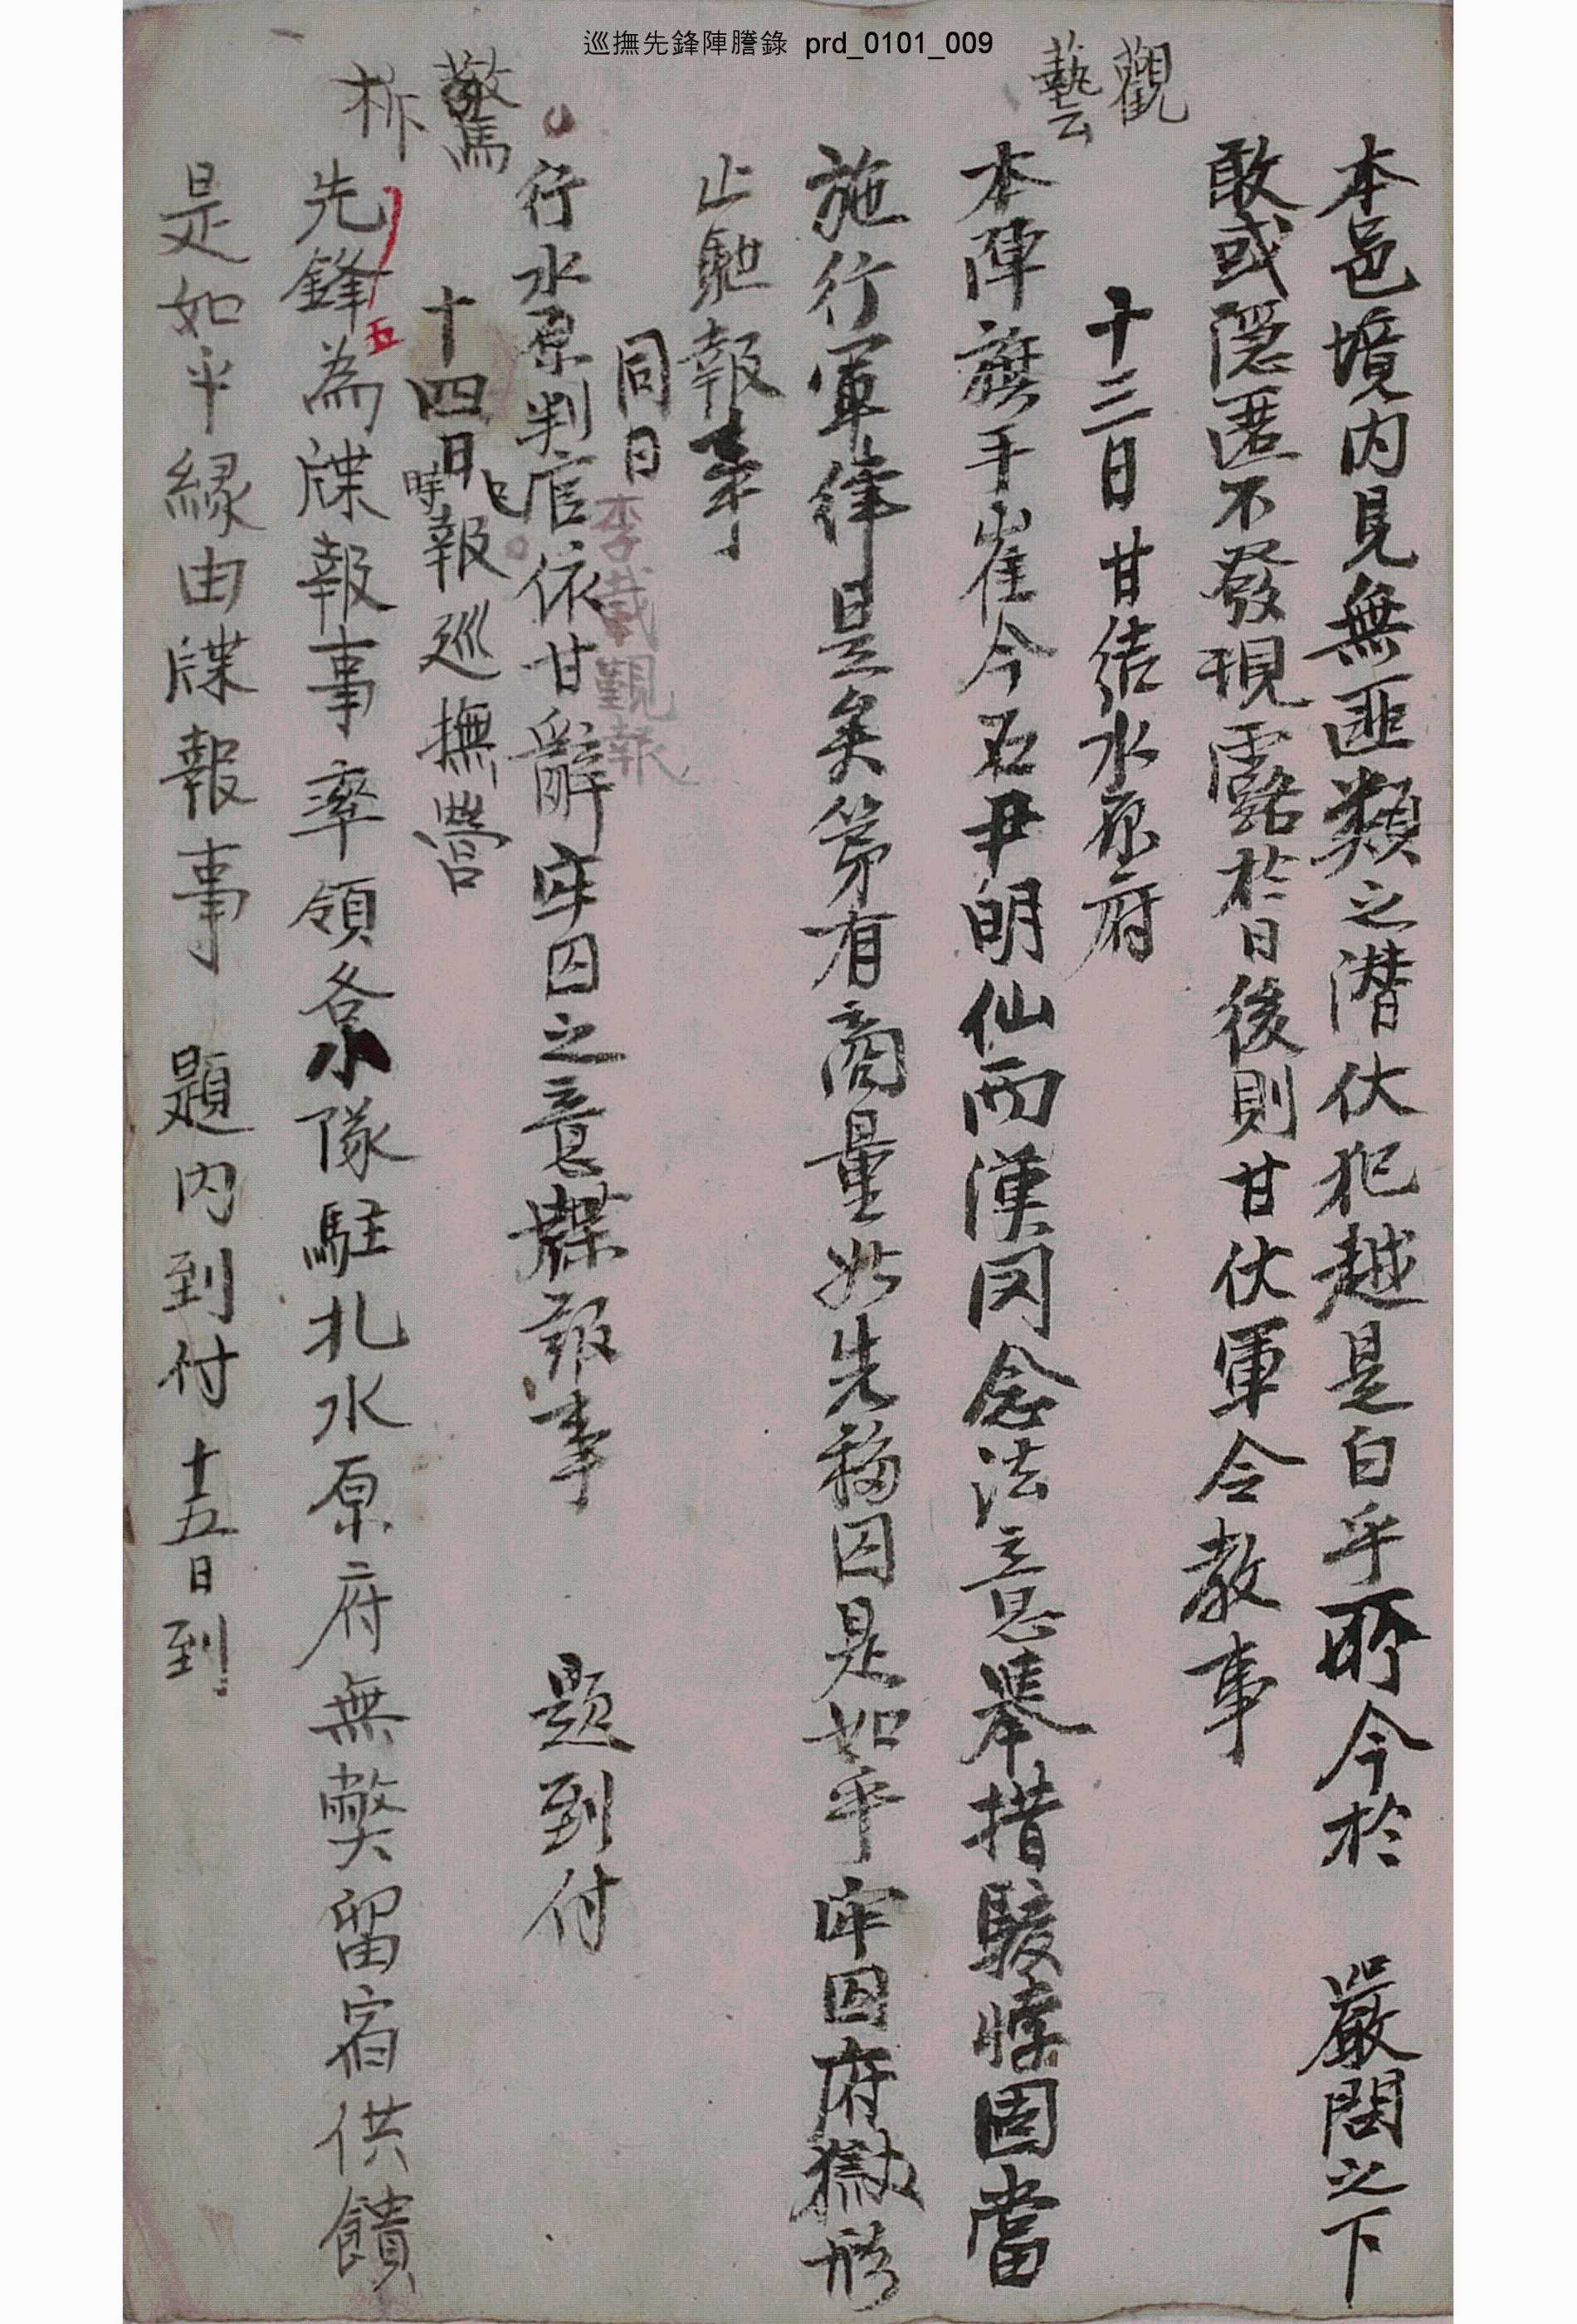 巡撫先鋒陣謄錄 prd_0101_009
觀
藝云
本邑境内見無匪類之潜伏犯越是白乎所今於 嚴問之下
敢或隱匿不發現露於日後則甘伏軍令教事
十三日甘結水原府
本陣旗手崔今石尹明仙兩漢罔念法意擧措駭悖固當
施行軍律是矣第有商量於先移囚是如乎牢囚府獄形
止馳報事
同日
李載覲報
行水原判官依甘辭牢囚之意牒報事 題到付
驚
柝
十四日巳時報巡撫營
五
先鋒為牒報事率領各小隊駐扎水原府無弊留宿供饋
是如乎緣由牒報事 題内到付 十五日到